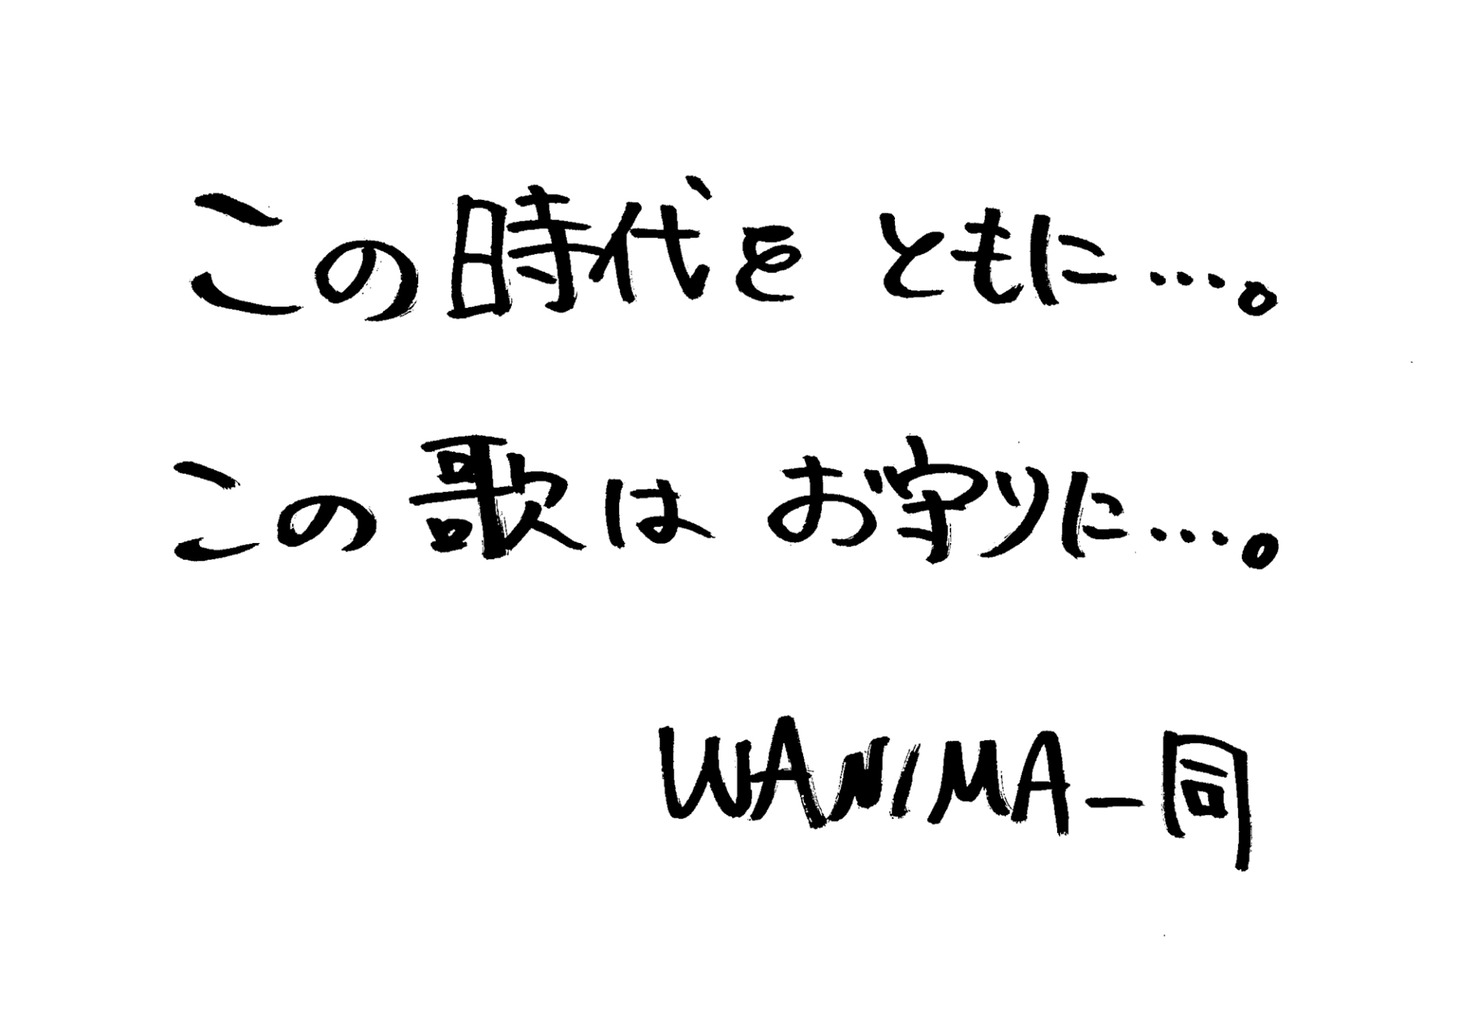 この時代を ともに…。
この歌は お守りに…。
WANIMA一同